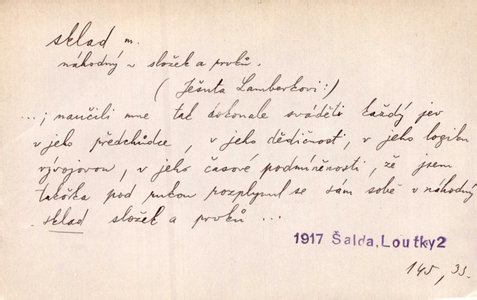 sklad m.
náhodný ~ složek a prvků.
(Ješuta Lamberkovi:)
...; naučili mne tak dokonale sváděti každý jev
v jeho předchůdce, v jeho dědičnost, v jeho logiku
vývojovou, v jeho časové podmíněnosti, že jsem
takořka pod rukou rozplynul se sám sobě v náhodný
sklad složek a prvků ...
1917 Šalda, Loutky 2
145, 33.